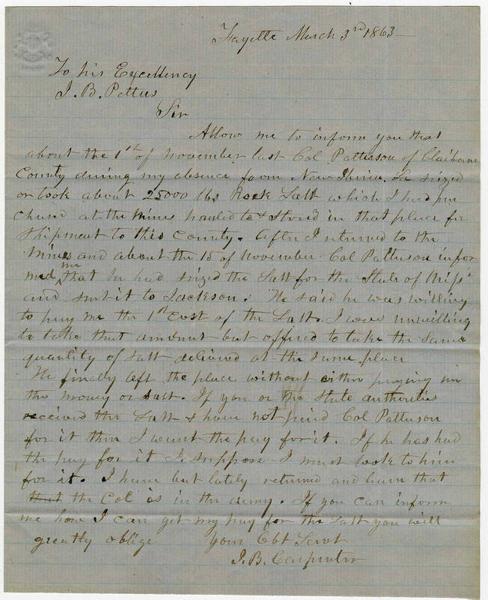 Fayette March 3rd 1863
To his Excellency
J. B. Pettus
Sir
Allow me to inform you that
about the 1st of November last Col Patterson of Claiborne
County during my absence from New Iberia. he seized
or took about 25000 lbs Rock Salt which I had pur
chased at the mines hauled to & stored in that place for
shipment to this County. After I returned to the
Mines and about the 15 of November Col Patterson infor
med me that he had seized the Salt for the State of Miss
and sent it to Jackson. He said he was willing
to pay me the 1st Cost of the Salt. I was unwilling
to take that amount but offered to take the same
quantity of Salt delivered at the same place
He finally left the place without either paying in
the money or salt. If you or the State authorities
received the Salt & have not paid Col Patterson
for it then I want the pay for it. If he has had
the pay for it I suppose I must look to him
for it. I have but lately returned and learn that
that the Col is in the army. If you can inform
me how I can get my pay for the Salt you will
greatly oblige your Obt Servt
J. B. Carpenter